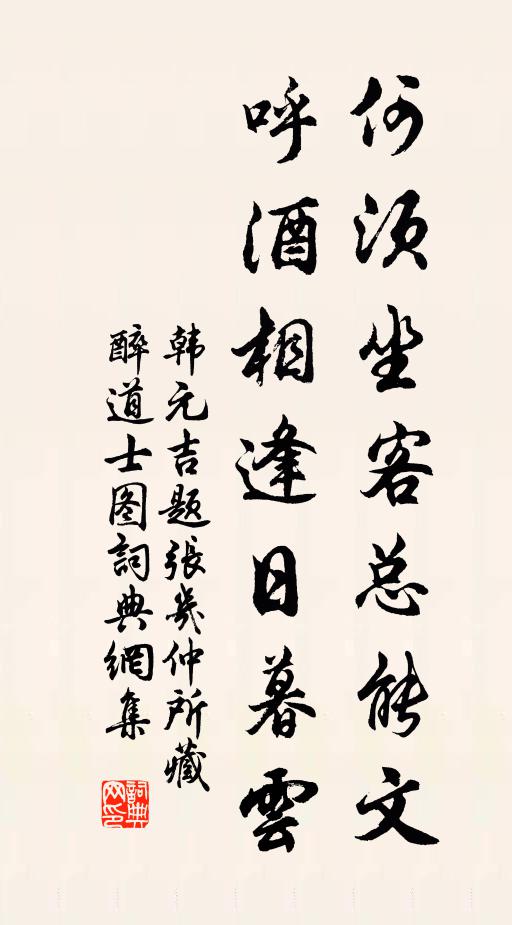 何须坐客总能文
呼酒相逢日暮雲
韩元吉题张幾仲所藏
醉道士图詞典網集
詞典
网印